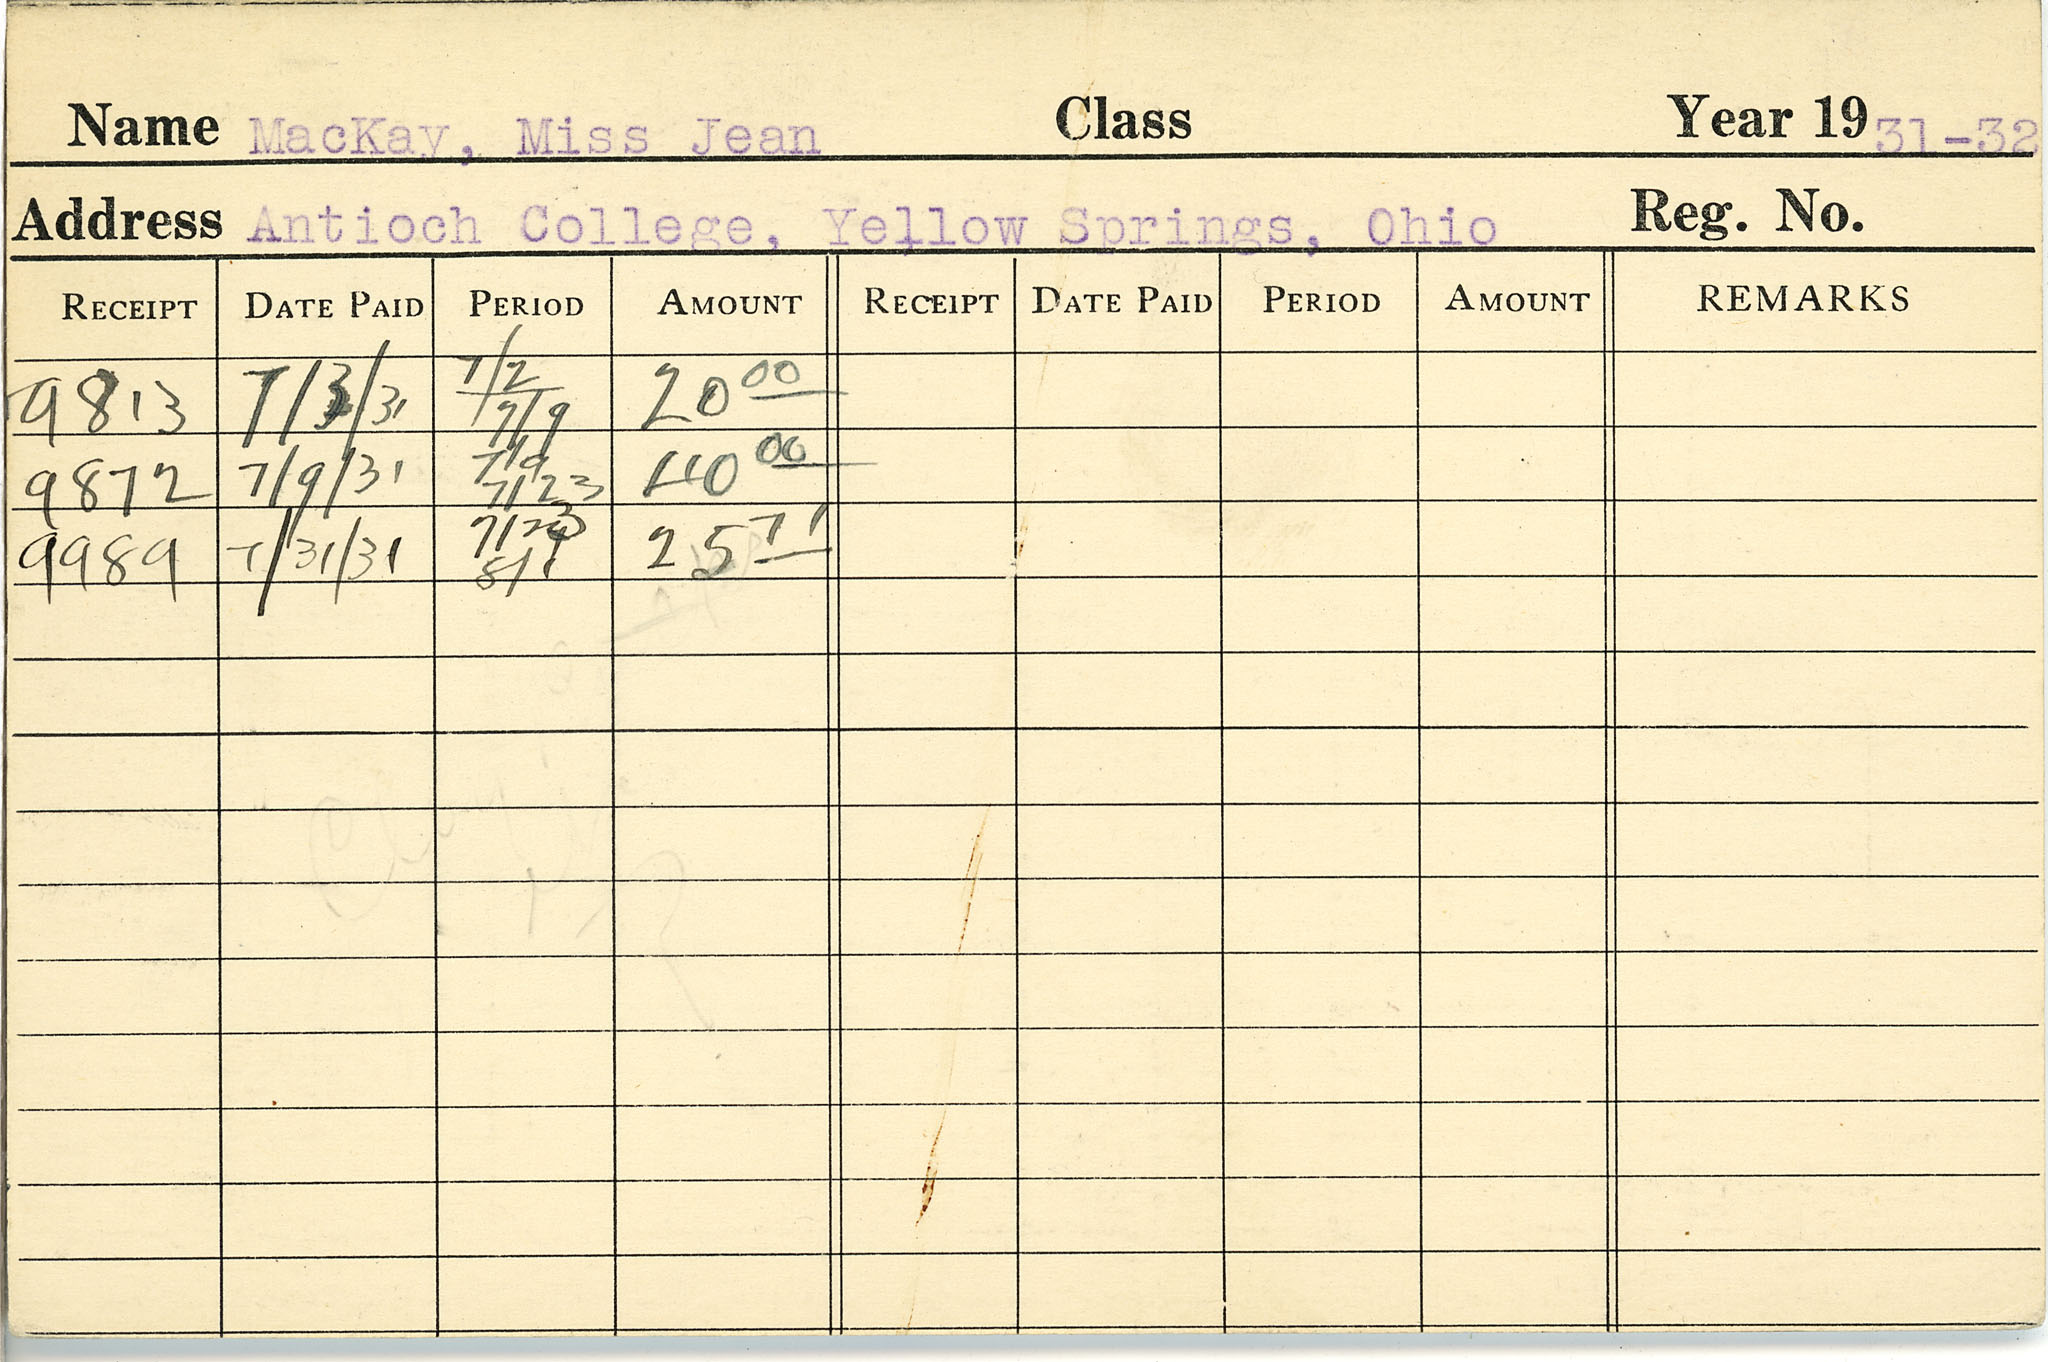 Name MacKay, Miss Jean Class Year 19 31-32
Address Antioch College, Yellow Springs, Ohio Reg. No.
RECEIPT DATE PAID PERIOD AMOUNT RECEIPT DATE PAID PERIOD AMOUNT REMARKS
9813 7/3/31 7/2 7/9 20 00
9872 7/9/31 7/9 7/23 40 00
9989 7/31/31 7/23 8/1 25 71